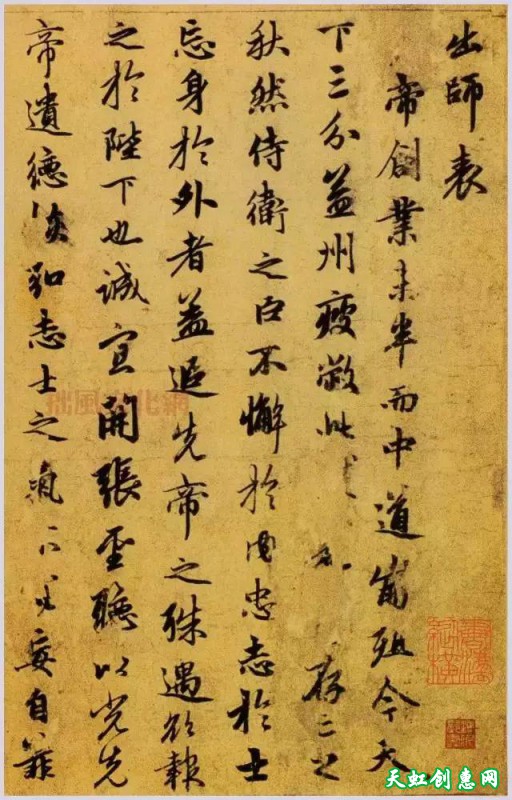 出師表
帝創業未半而中道崩殂今天
下三分益州疲敝此存亡之
秋然侍衛之臣不懈於内忠志於士
忘身於外者蓋追先帝之殊遇欲報
之於陛下也誠宜開張聖聽以光先
帝遺德恢弘志士之氣不宜妄自菲
拙風文化網
天虹创惠网